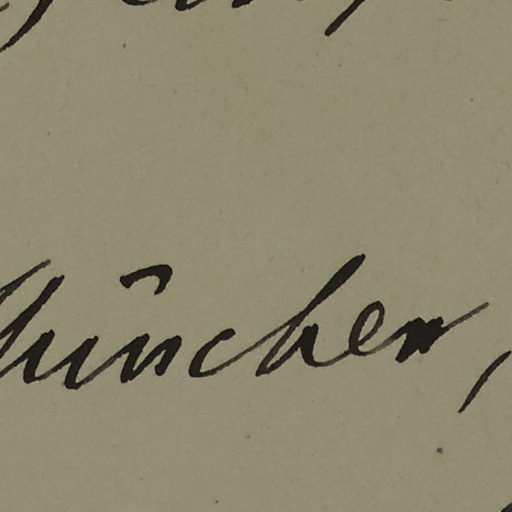 München,